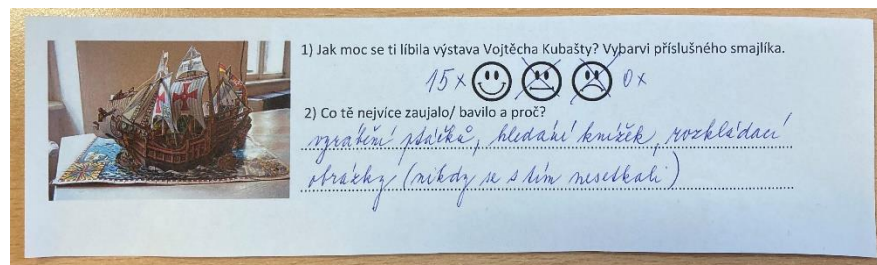 1) Jak moc se ti líbila výstava Vojtěcha Kubašty? Vybarvi příslušného smajlíka.
15x 0x
2) Co tě nejvíce zaujalo/ bavilo a proč?
vyrábění ptáčků, hledání knížek, rozkládací
obrázky (nikdy se s tím nesetkali)